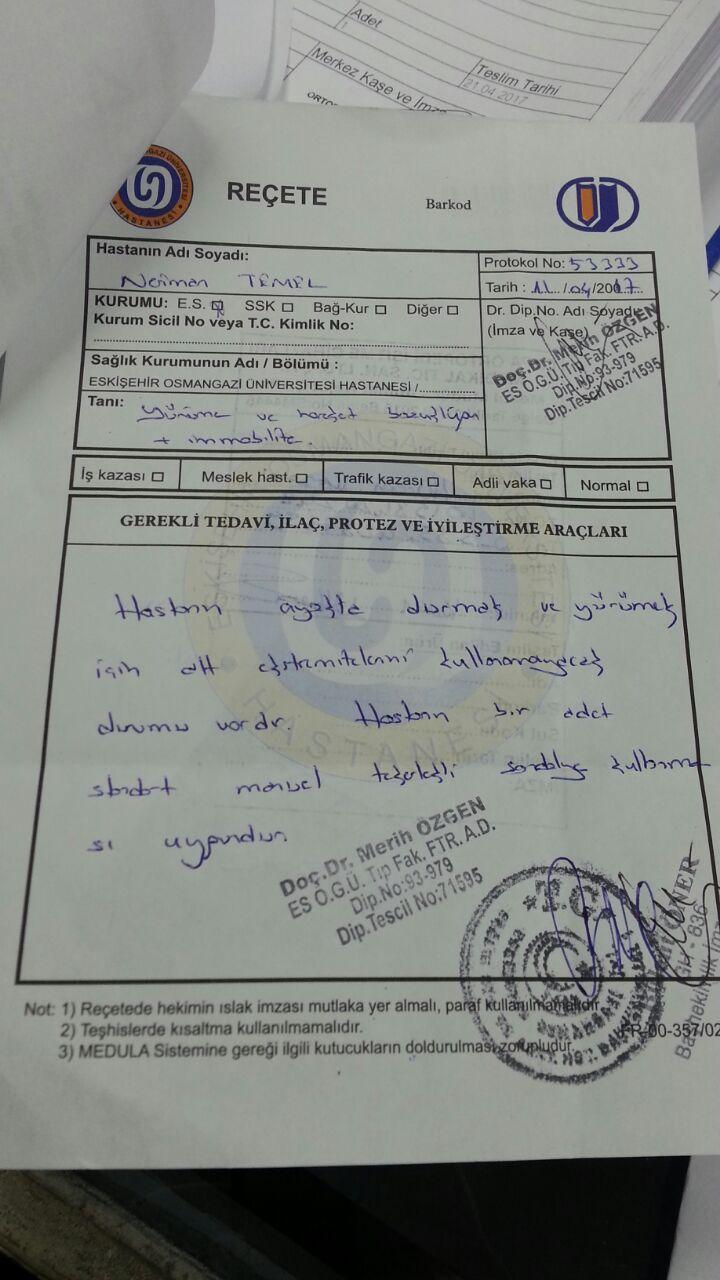 Adet
1
Teslim Tarihi
21.04.2017
Merkez Kaşe ve İmza
ORTO
GAZİ ÜNİVERSİTESİ
HASTANESİ
REÇETE
Barkod
Hastanın Adı Soyadı:
Neriman TEMEL
Protokol No: 53333
Tarih : 11 /04/2017
KURUMU: E.S. SSK Bağ-Kur Diğer
Kurum Sicil No veya T.C. Kimlik No:
Dr. Dip.No. Adı Soyadı
(İmza ve Kaşe)
Doç.Dr. Merih ÖZGEN
ES O.G.Ü. Tıp Fak. FTR. A.D.
Dip.No:93-979
Dip.Tescil No:71595
Sağlık Kurumunun Adı / Bölümü :
ESKİŞEHİR OSMANGAZİ ÜNİVERSİTESİ HASTANESİ /
Tanı: yürüme ve hareket bozukluğu
+ immobilite.
İş kazası Meslek hast. Trafik kazası Adli vaka Normal
GEREKLİ TEDAVİ, İLAÇ, PROTEZ VE İYİLEŞTİRME ARAÇLARI
Hastanın ayakta durmak ve yürümek
için alt ekstremitelerini kullanamayacak
durumu vardır. Hastanın bir adet
standart manuel tekerlekli sandalye kullanma
sı uygundur.
Doç.Dr. Merih ÖZGEN
ES O.G.Ü. Tıp Fak. FTR. A.D.
Dip.No:93-979
Dip.Tescil No:71595
T.C.
Not: 1) Reçetede hekimin ıslak imzası mutlaka yer almalı, paraf kullanılmamalıdır.
2) Teşhislerde kısaltma kullanılmamalıdır.
3) MEDULA Sistemine gereği ilgili kutucukların doldurulması zorunludur.
FR-00-357/02